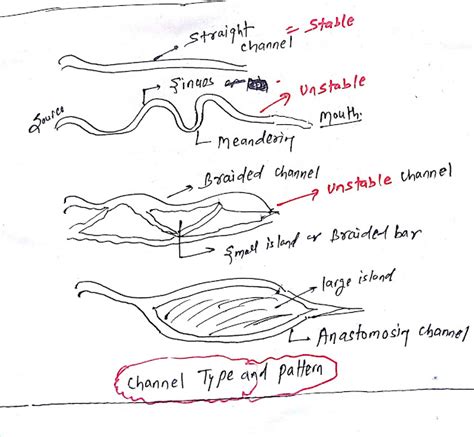 Straight channel = Stable
Sinuos
Unstable
Source
Mouth.
Meandering
Braided channel
Unstable channel
Small island or Braided bar
large island
Anastomosing channel
Channel Type and pattern